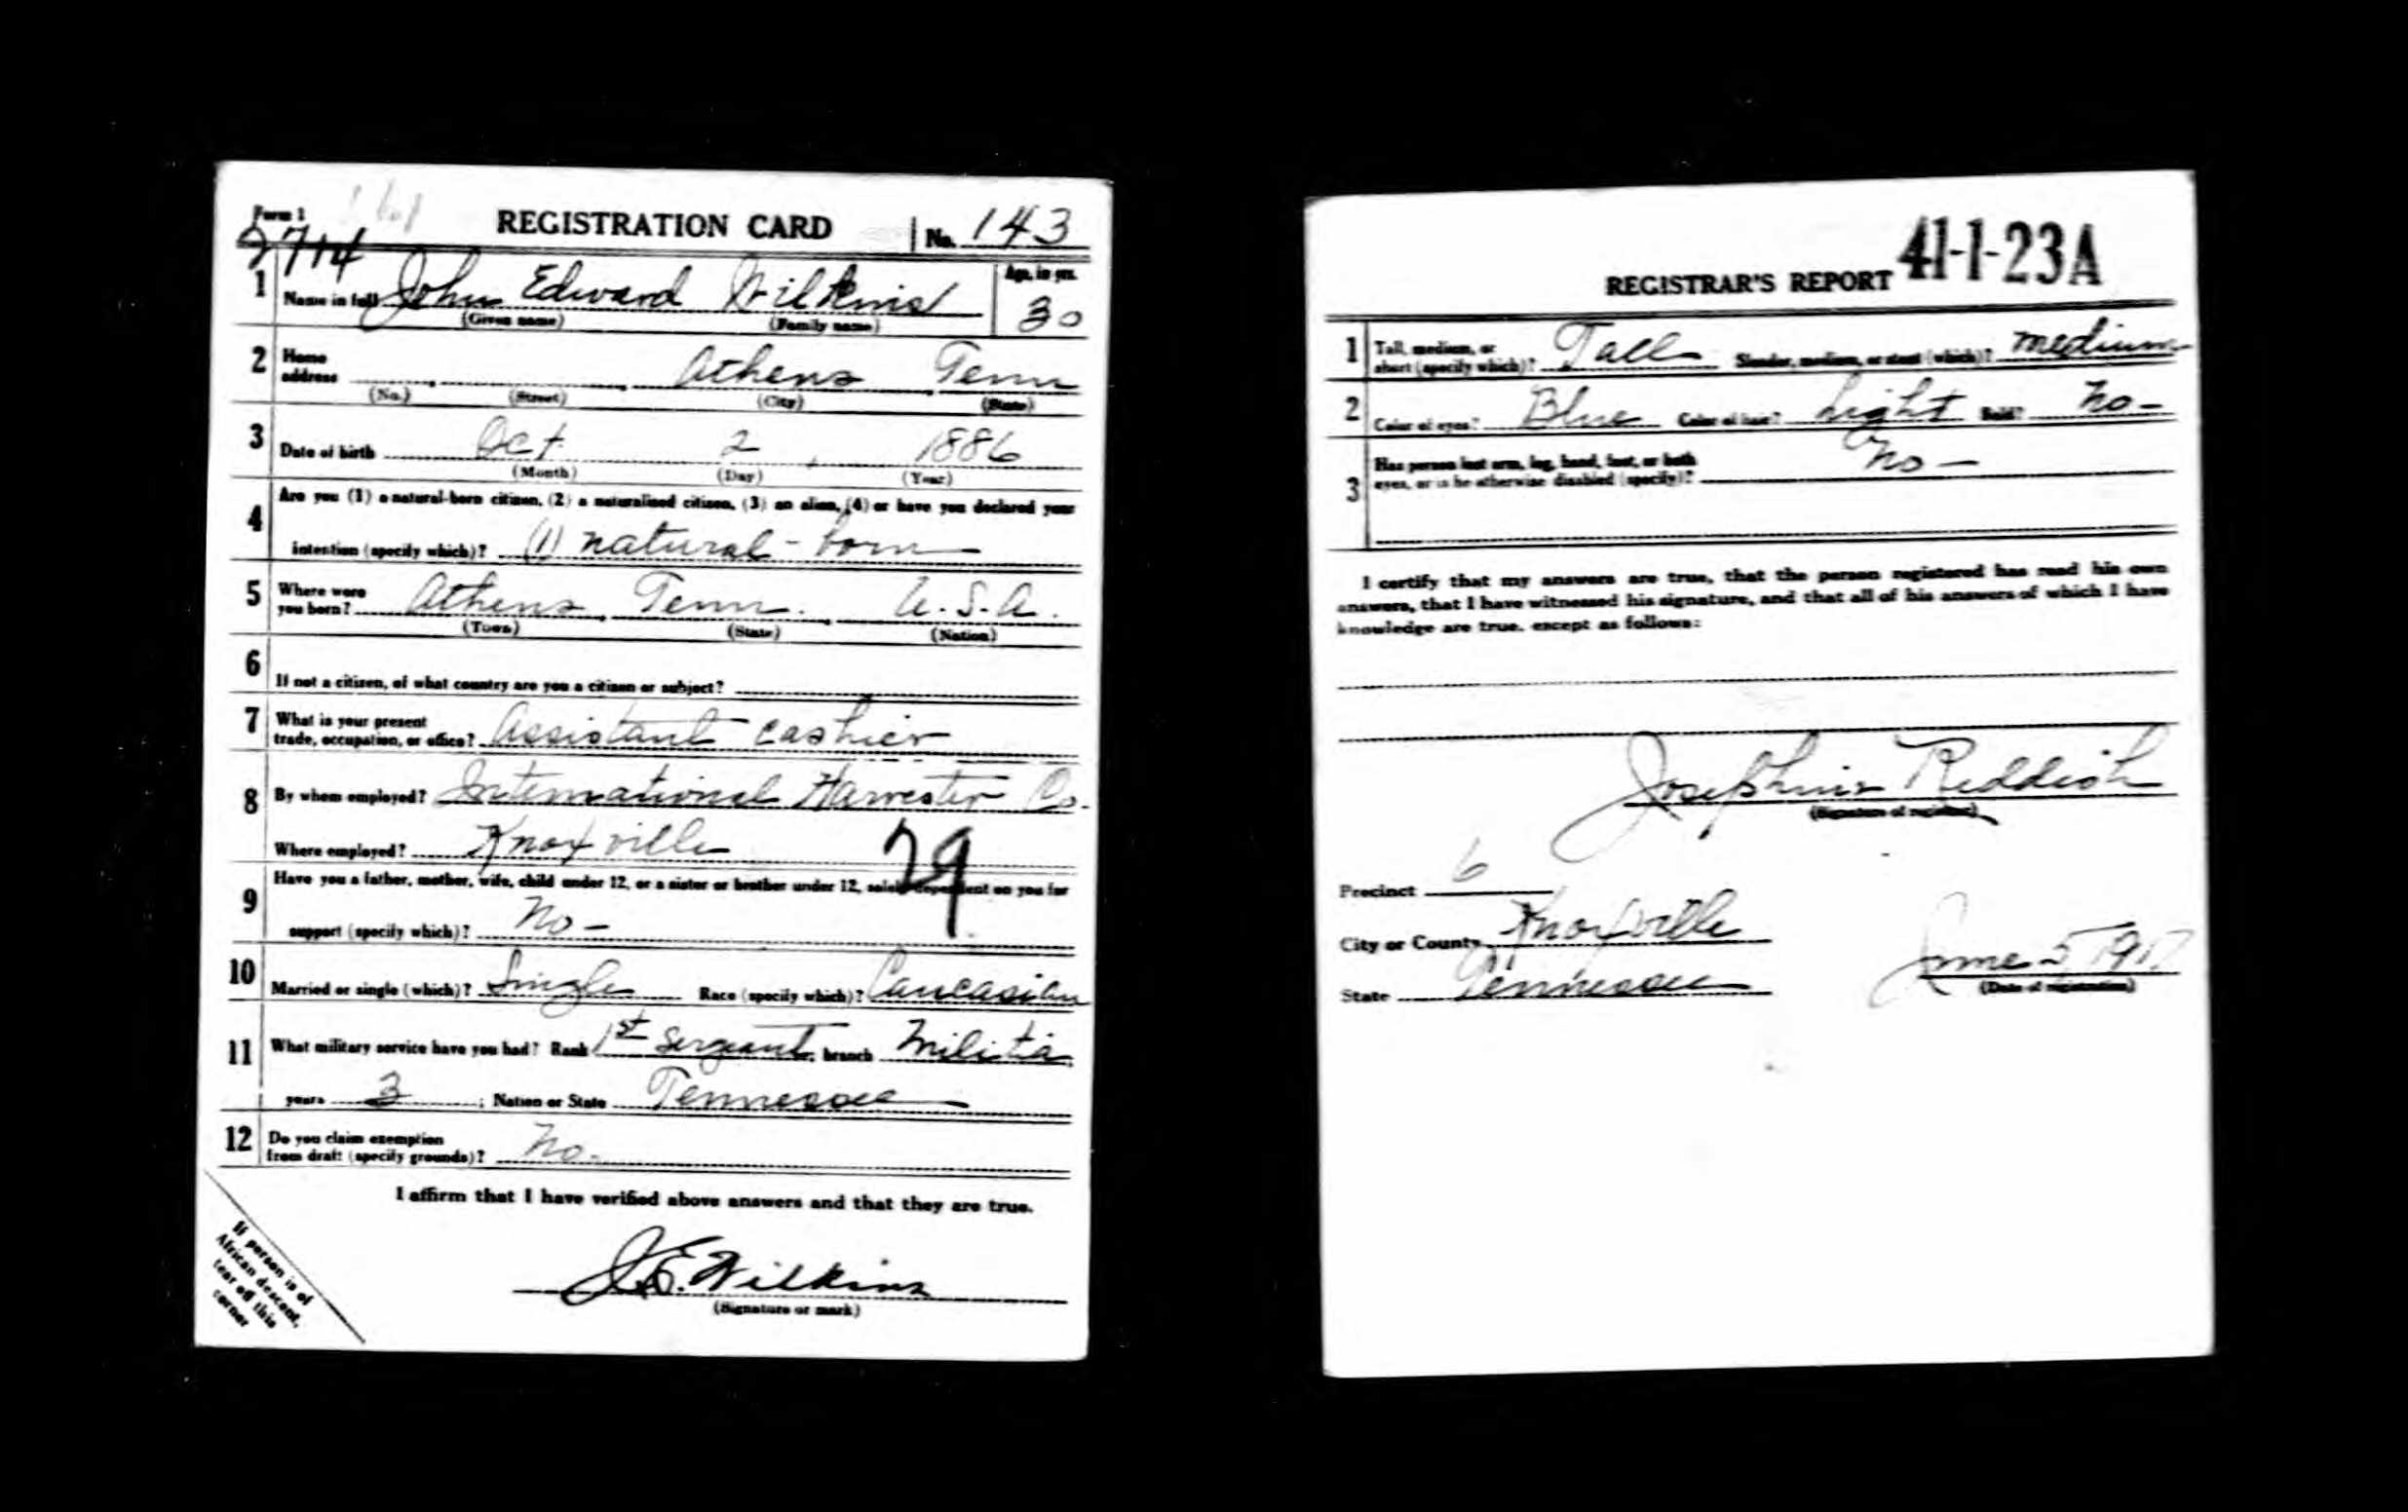 Form 1
REGISTRATION CARD
No. 143
2714
1 Name in full John Edward Wilkins
(Given name) (Family name)
Age, in yrs.
30
2 Home address Athens Tenn
(No.) (Street) (City) (State)
3 Date of birth Oct 2, 1886
(Month) (Day) (Year)
4 Are you (1) a natural-born citizen, (2) a naturalized citizen, (3) an alien, (4) or have you declared your
intention (specify which)? (1) natural-born
5 Where were you born? Athens, Tenn., U.S.A.
(Town) (State) (Nation)
6 If not a citizen, of what country are you a citizen or subject?
7 What is your present
trade, occupation, or office? Assistant cashier
8 By whom employed? International Harvester Co.
Where employed? Knoxville
29
9 Have you a father, mother, wife, child under 12, or a sister or brother under 12, solely dependent on you for
support (specify which)? No -
10 Married or single (which)? Single Race (specify which)? Caucasian
11 What military service have you had? Rank 1st Sergeant; branch Militia
years 3; Nation or State Tennessee
12 Do you claim exemption
from draft (specify grounds)? No.
I affirm that I have verified above answers and that they are true.
J.E. Wilkins
(Signature or mark)
If person is of
African descent,
tear off this
corner
REGISTRAR'S REPORT
41-1-23A
1 Tall, medium, or
short (specify which)? Tall Slender, medium, or stout (which)? medium
2 Color of eyes? Blue Color of hair? Light Bald? No -
3 Has person lost arm, leg, hand, foot, or both
eyes, or is he otherwise disabled (specify)? No -
I certify that my answers are true, that the person registered has read his own
answers, that I have witnessed his signature, and that all of his answers of which I have
knowledge are true, except as follows:
Josephine Reddish
(Signature of registrar)
Precinct 6
City or County Knoxville
State Tennessee
June 5 1917
(Date of registration)